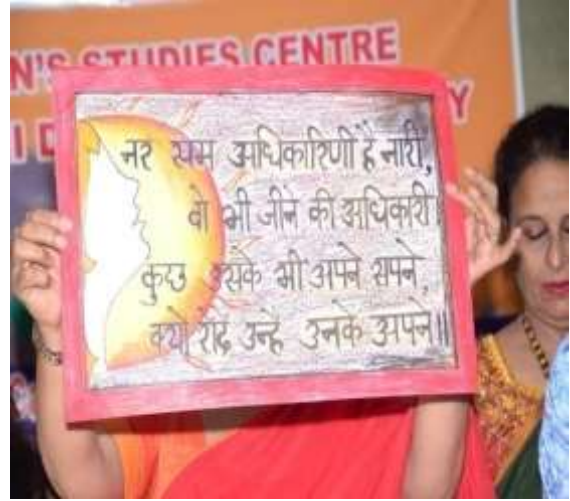 N'S STUDIES CENTRE
नर सम अधिकारिणी है नारी,
वो भी जीने की अधिकारी।
कुछ उसके भी अपने सपने,
क्यों रौंदे उन्हें उनके अपने॥